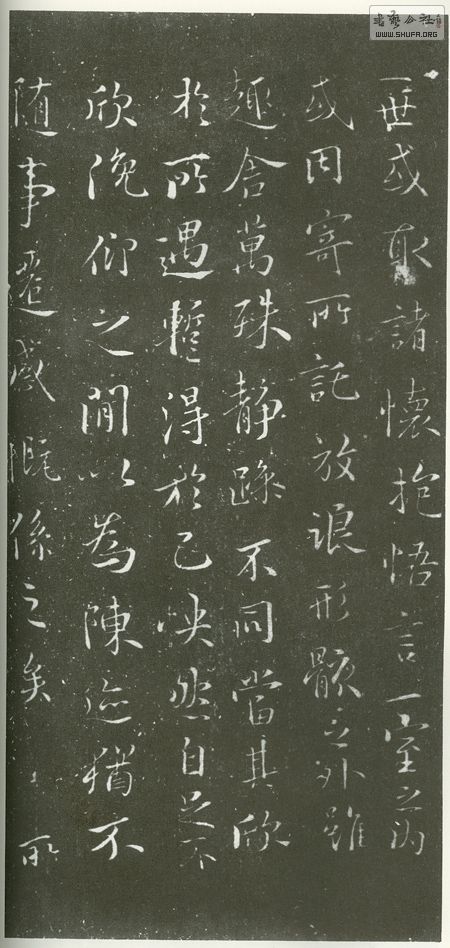 一世或取諸懷抱悟言一室之內
或因寄所託放浪形骸之外雖
趣舍萬殊靜躁不同當其欣
於所遇蹔得於己怏然自足不
欣俛仰之間以為陳迹猶不
隨事遷感慨係之矣 所
书艺公社
WWW.SHUFA.ORG